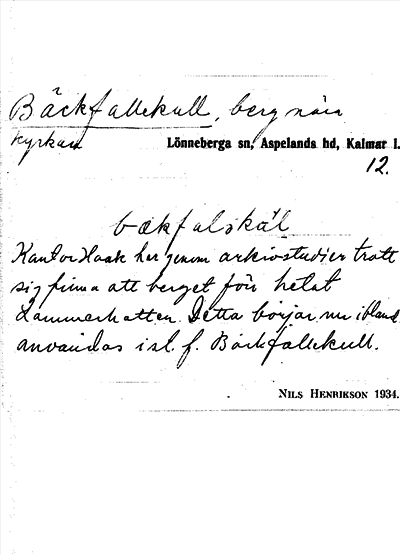 Bäckfallekull, berg nära
kyrkan
Lönneberga sn, Aspelands hd, Kalmar l.
12.
bækfalskäl
Kantor Haak har genom arkivstudier trott
sig finna att berget förr hetat
Lammerhatten. Detta börjar nu ibland
användas i st. f. Bäckfallekull.
NILS HENRIKSON 1934.